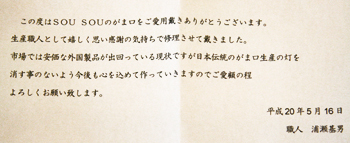 この度はSOU SOUのがま口をご愛用戴きありがとうございます。
生産職人として嬉しく思い感謝の気持ちで修理させて戴きました。
市場では安価な外国製品が出回っている現状ですが日本伝統のがま口生産の灯を
消す事のないよう今後も心を込めて作っていきますのでご愛顧の程
よろしくお願い致します。
平成20年5月16日
職人 浦瀬基男